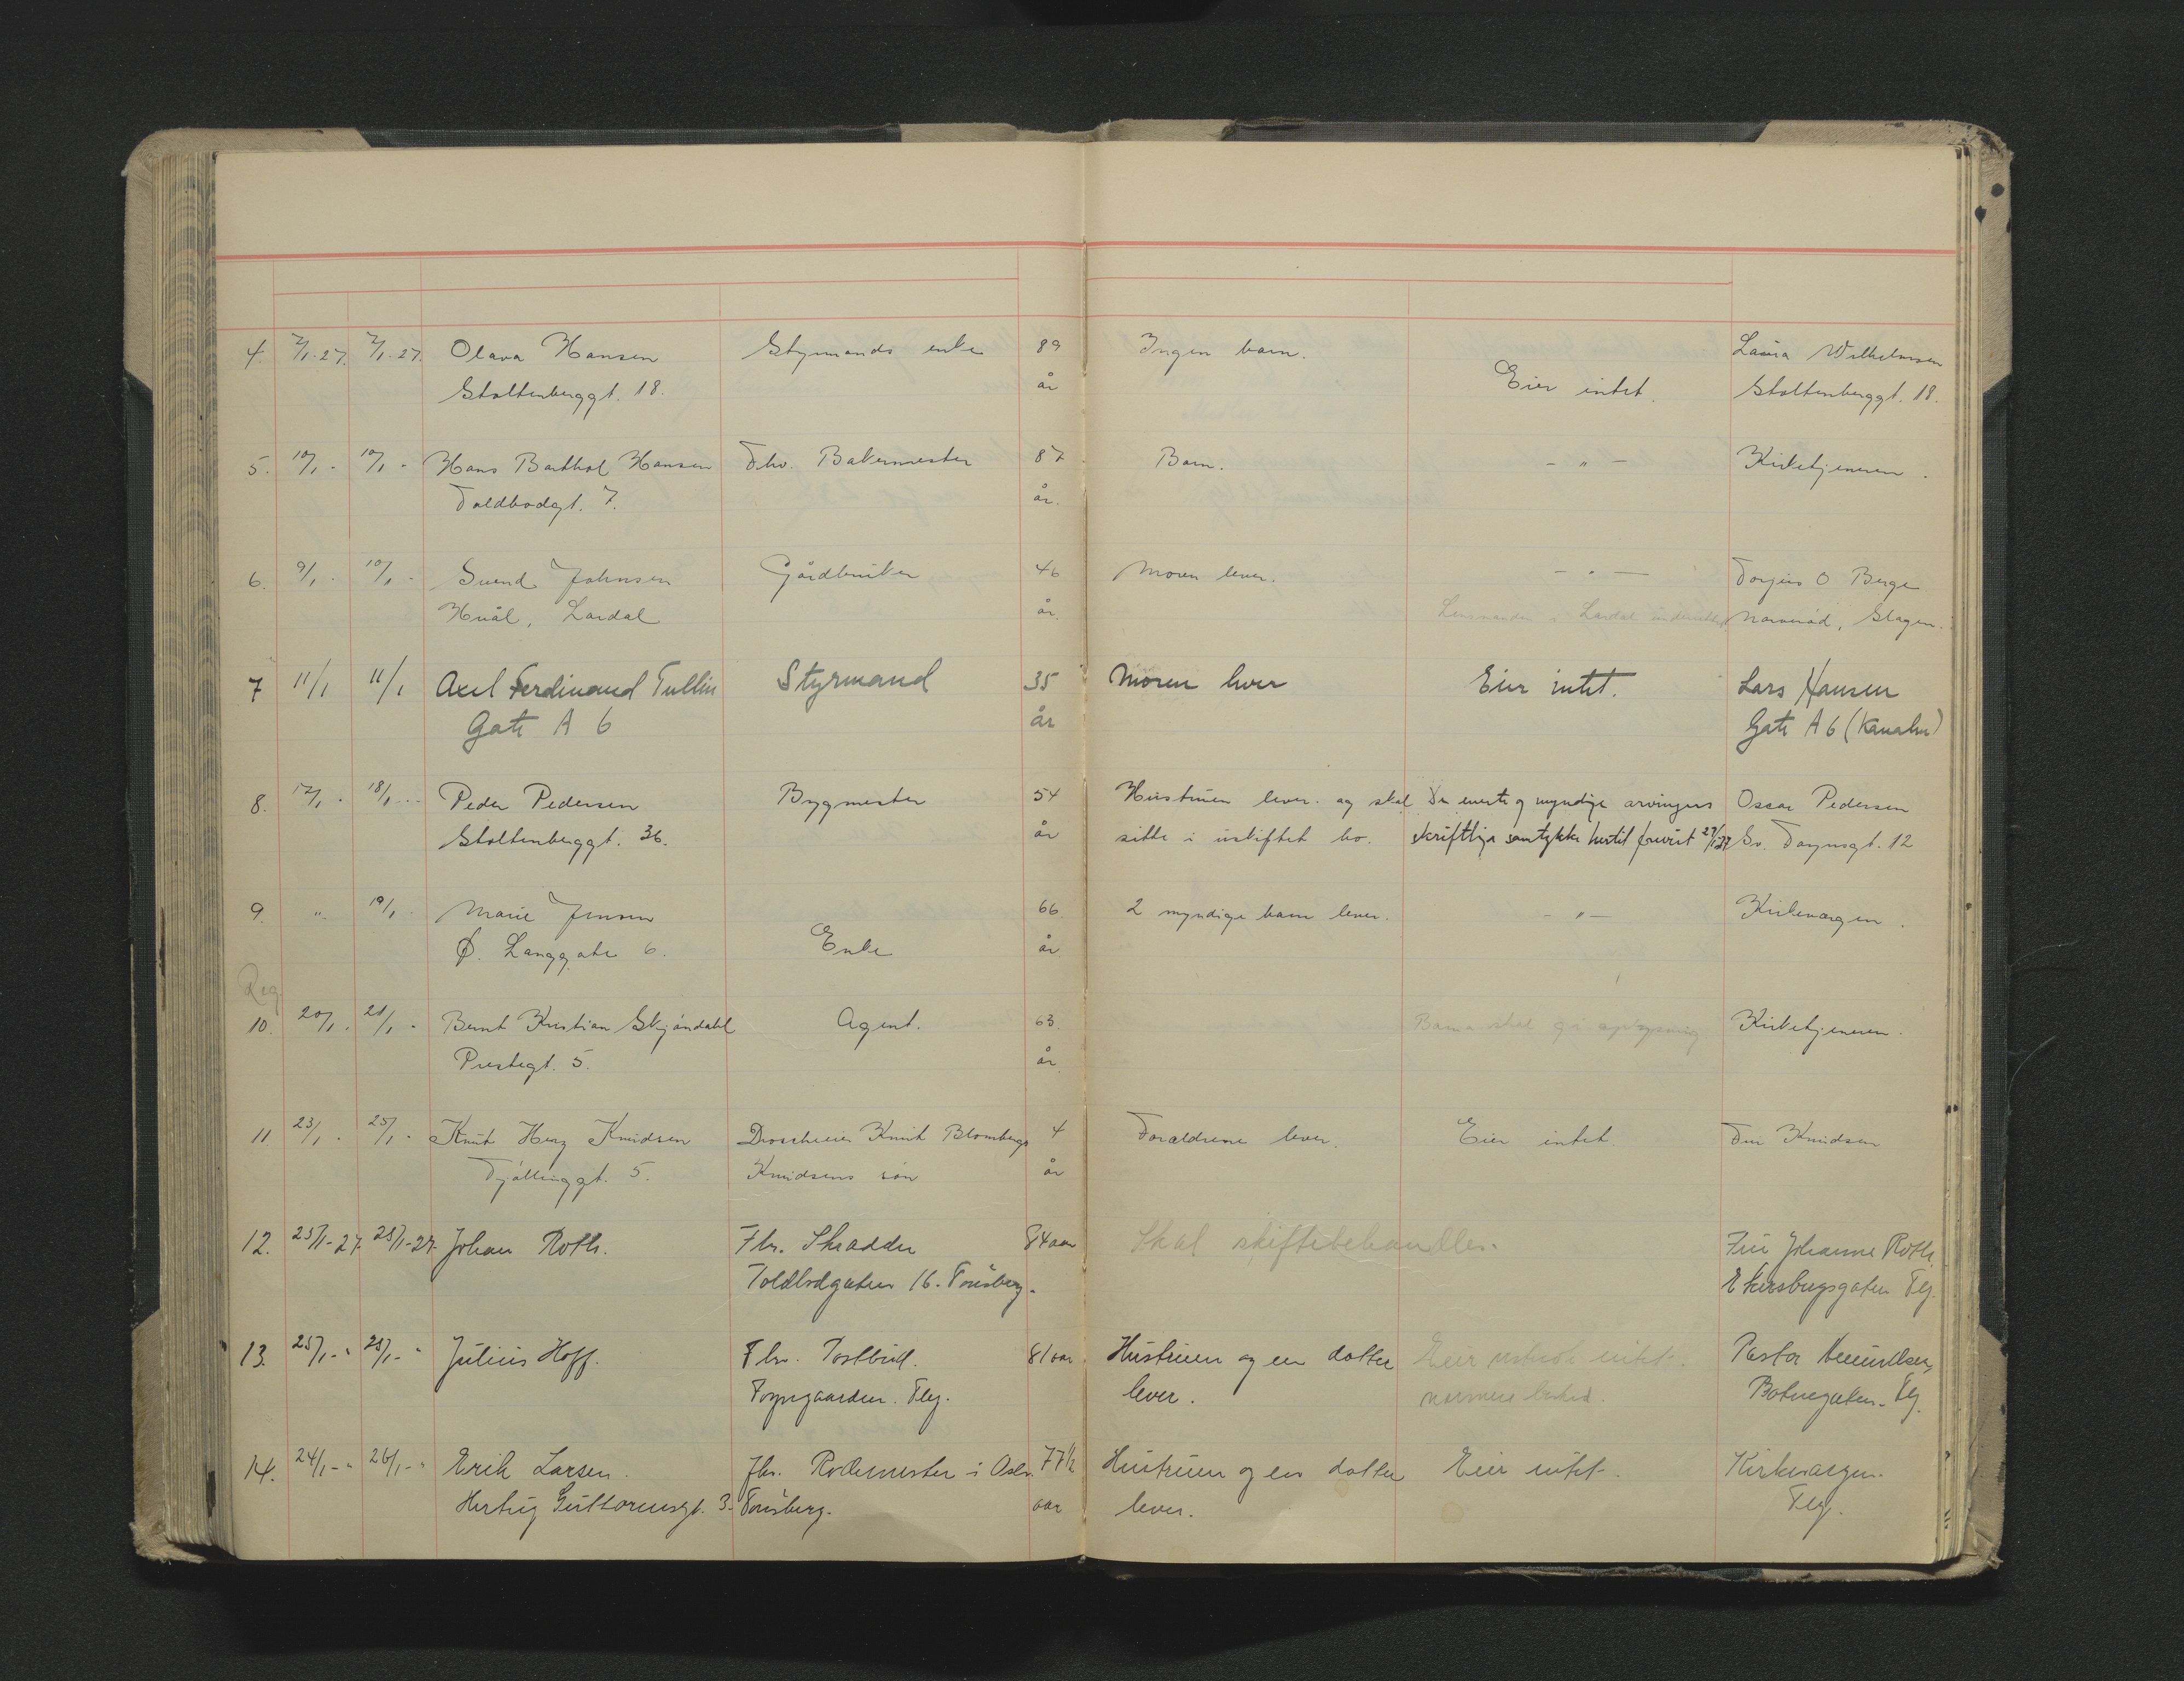 4. 7/1-27. 7/1-27. Olava Hansen Styrmands enke 89 Ingen barn. Laura Wilhelmsen
Stoltenberggt. 18. år Eier intet. Stoltenberggt. 18.
5. 10/1 - 10/1 - Hans Barthol Hansen Fhv. Bakermester 87 Barn. - " - Kirketjeneren.
Toldbodgt. 7. år.
6. 9/1 - 10/1 - Svend Johnsen Gårdbruker 46 Moren lever. - " - Torjus O Berge
Hvål, Lardal år. Lensmanden i Lardal underrettet Narverød, Slagen.
7 11/1 11/1 Axel Ferdinand Tullin Styrmand 35 Moren lever Eier intet. Lars Hansen
Gate A 6 år Gate A 6 (Kanalen)
8. 12/1 - 18/1 - Peder Pedersen Bygmester 54 Hustruen lever. og skal De eneste og myndige arvingers Oscar Pedersen
Stoltenberggt. 36. år sitte i uskiftet bo. skriftlige samtykke hertil forevist 27/1 27 Sv. Foynsgt. 12
9. " 19/1 - Marie Jensen 66 2 myndige barn lever. - " - Kirkevergen.
Ø. Langgate 6. Enke år
Reg.
10. 20/1 - 21/1 - Bernt Kristian Skjöndahl Agent. 63. Barna skal gi oplysning Kirketjeneren.
Prestegt. 5. år
11. 23/1 - 25/1 - Knut Herz Knudsen Droscheeier Knut Blombergs 4 Foraldrene lever. Eier intet. Fru Knudsen
Tjöllinggt. 5. Knudsens sön år
12. 25/1-27. 25/1-27. Johan Roth. Fhv. Skradder 84 aar Skal skiftebehandles. Fru Johanne Roth,
Toldbodgaten 16. Tönsberg. gaten Tbg.
13. 25/1 - " 25/1 - " Julius Hoff. Fhv. Postbud. 81 aar. Hustruen og en datter Eier intet. Pastor
Foyngaarden. Tbg. lever. nærmere besked. Botnegaten. Tbg.
14. 24/1 - " 26/1 - " Erik Larsen. Fhv. Rodemester i Oslo. 77 1/2 Hustruen og en datter Eier intet. Kirkevergen.
Hertug Guttormsgt. 3. Tönsberg. aar lever. Tbg.